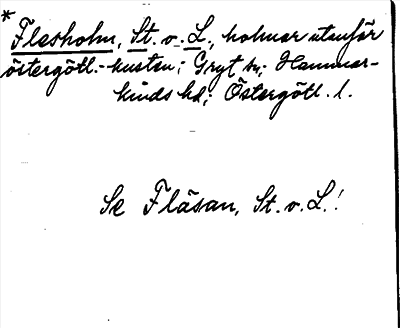 *
Flesholm, St. o. L., holmar utanför
östergötl.-kusten; Gryt sn; Hammar-
kinds hd; Östergötl. l.
Se Fläsan, St. o. L.!